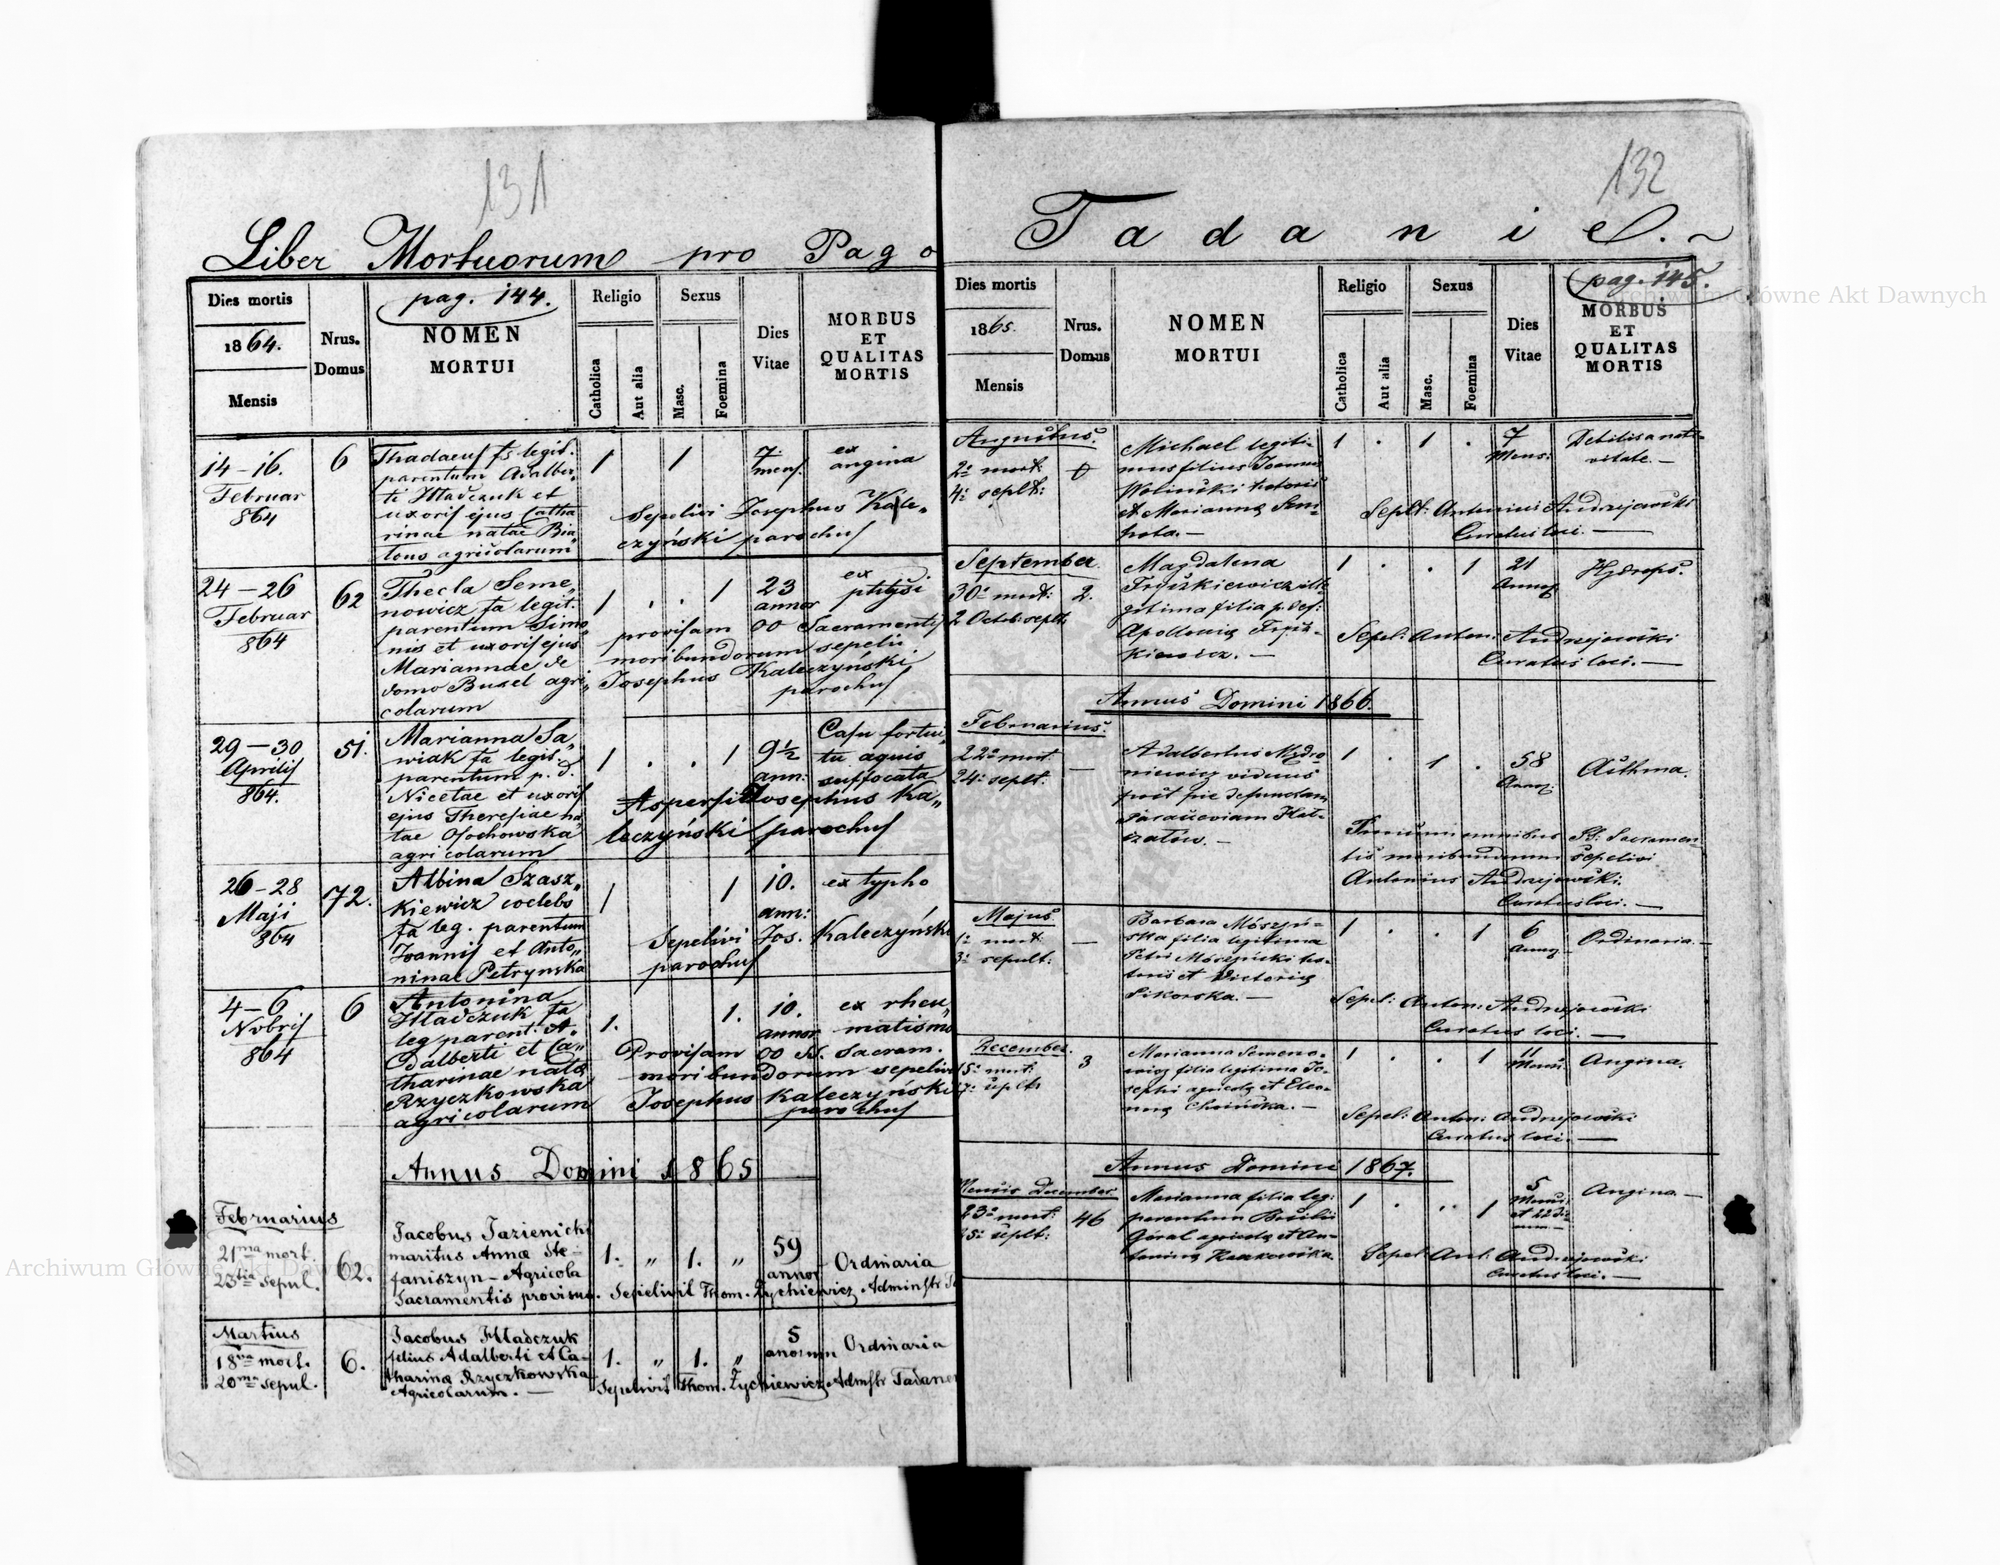 131
Liber Mortuorum pro Pago
Dies mortis
1864.
Mensis
Nrus.
Domus
pag. 144.
NOMEN
MORTUI
Religio
Catholica
Aut alia
Sexus
Masc.
Foemina
Dies
Vitae
MORBUS
ET
QUALITAS
MORTIS
14–16.
Februar
864
6
Thadaeus fs legit.
parentum Adalber„
ti Hładczuk et
uxoris ejus Catha
rinae natae
agricolarum
1
1
7.
mens.
ex
angina
Sepelivi Josephus Kale„
czyński parochus
24–26
Februar
864
62
Thecla Seme„
nowicz fa legit.
parentum Simo„
nis et uxoris ejus
Mariannae de
domo Busel agri„
colarum
1 . . 1
23
annor
ex
phtysi
provisam 00 Sacramentis
moribundorum sepelii.
Josephus Kaleczyński
parochus
29–30
Aprilis
864.
51.
Marianna Sa„
wiak fa legit.
parentum p. d.
Nicetae et uxoris
ejus Theresiae na„
tae Osochowska
agricolarum
1 . . 1
9½
ann:
Casu fortui„
tu aquis
suffocata
Aspersit Josephus Ka„
leczyński parochus
26–28
Maji
864
72.
Albina Szasz„
kiewicz coelebs
fa leg. parentum
Joannis et Anto„
ninae Petrynska
1
1
10.
ann:
ex typho
Sepelivi Jos. Kaleczyński
parochus
4–6
Nobris
864
6
Antonina
Hładczuk fa
leg parent. A„
dalberti et Ca„
tharinae nata
Rzyczkowska
agricolarum
1.
1.
10.
annor
ex rheu„
matismo
Provisam 00 SS. Sacram.
moribundorum sepelivi
Josephus Kaleczyński
parochus
Annus Domini 1865
Februarius
21ma mort.
23tia sepul.
62.
Jacobus Jazienicki
maritus Annæ Ste–
faniszyn – Agricola
Sacramentis provisus.
1. „ 1. „
59
annor
Ordinaria
Sepelivit Thom. Żychiewicz Adminstr
Martius
18va mort.
20ma sepul.
6.
Jacobus Hładczuk
filius Adalberti et Ca–
tharinæ Rzyczkowska
Agricolarum. —
1. „ 1. „
5
anorum
Ordinaria
Sepelivit Thom. Żychiewicz Admstr Tadane
132
Tadanie.
Dies mortis
1865.
Mensis
Nrus.
Domus
NOMEN
MORTUI
Religio
Catholica
Aut alia
Sexus
Masc.
Foemina
Dies
Vitae
pag. 145.
MORBUS
ET
QUALITAS
MORTIS
Augustus.
2a mort:
4a seplt:
Michael legiti–
mus filius Joannis
Woliński
et Marianna
1 . 1 .
7
Mens:
Debilis a nati–
vitate. —
Seplt: Antonius Andrzejowski
Curatus loci. —
September.
30a mort:
2 Octob: seplt.
2.
Magdalena
gitima filia p. def:
Apolloniæ
kiewicz. —
1 . . 1
21
Annor
Hydrops.
Sepel: Anton: Andrzejowski
Curatus loci. —
Annus Domini 1866.
Februarius.
22a mort.
24a seplt.
—
Adalbertus
niewicz viduus
post pie defunctam
1 . 1 .
58
Annor
Asthma.
omnibus SS: Sacramen–
tis moribundum sepelivi
Antonius Andrzejowski.
Curatus loci. —
Majus
1a mort:
3a sepult:
—
Barbara Mószyń–
ska filia legitima
Petri Mószyński
et Victoriæ
Sikorska. —
1 . . 1
6
Annor
Ordinaria. —
Sepel: Anton: Andrzejowski
Curatus loci. —
December.
15a mort:
17a seplta
3
Marianna Semeno–
wicz filia legitima Jo–
sephi agricolæ et Eleo–
noræ
1 . . 1
11
Mens.
Angina.
Sepel: Anton: Andrzejowski
Curatus loci. —
Annus Domini 1867.
Mensis December
23a mort:
25a seplt:
46
Marianna filia leg:
parentum Basilii
Góral agricolæ et An–
toninæ
1 . . 1
5
Mens:
Angina. —
Sepel: Ant: Andrzejowski
Curatus loci. —
Archiwum Główne Akt Dawnych
Archiwum Główne Akt Dawnych